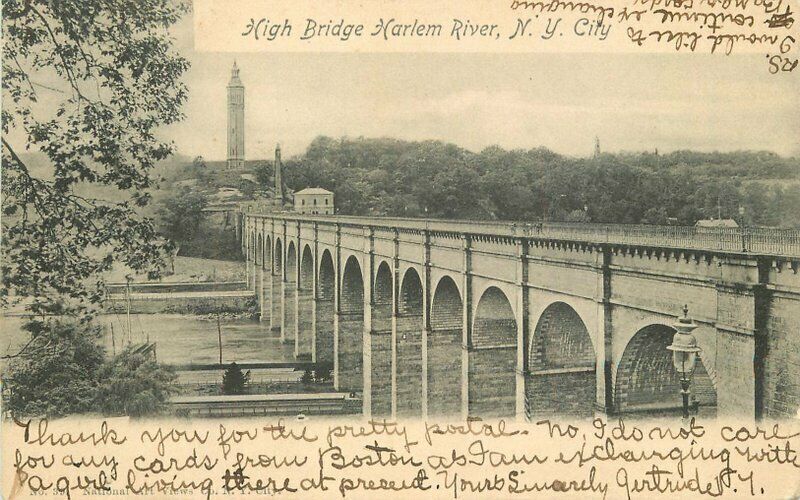 High Bridge Harlem River, N. Y. City
P.S.
I would like to
continue exchanging
cards
Thank you for the pretty postal. No, I do not care
for any cards from Boston as I am exchanging with
a girl living there at present. Yours Sincerely Gertrude
National Art Views Co. N. Y. City.